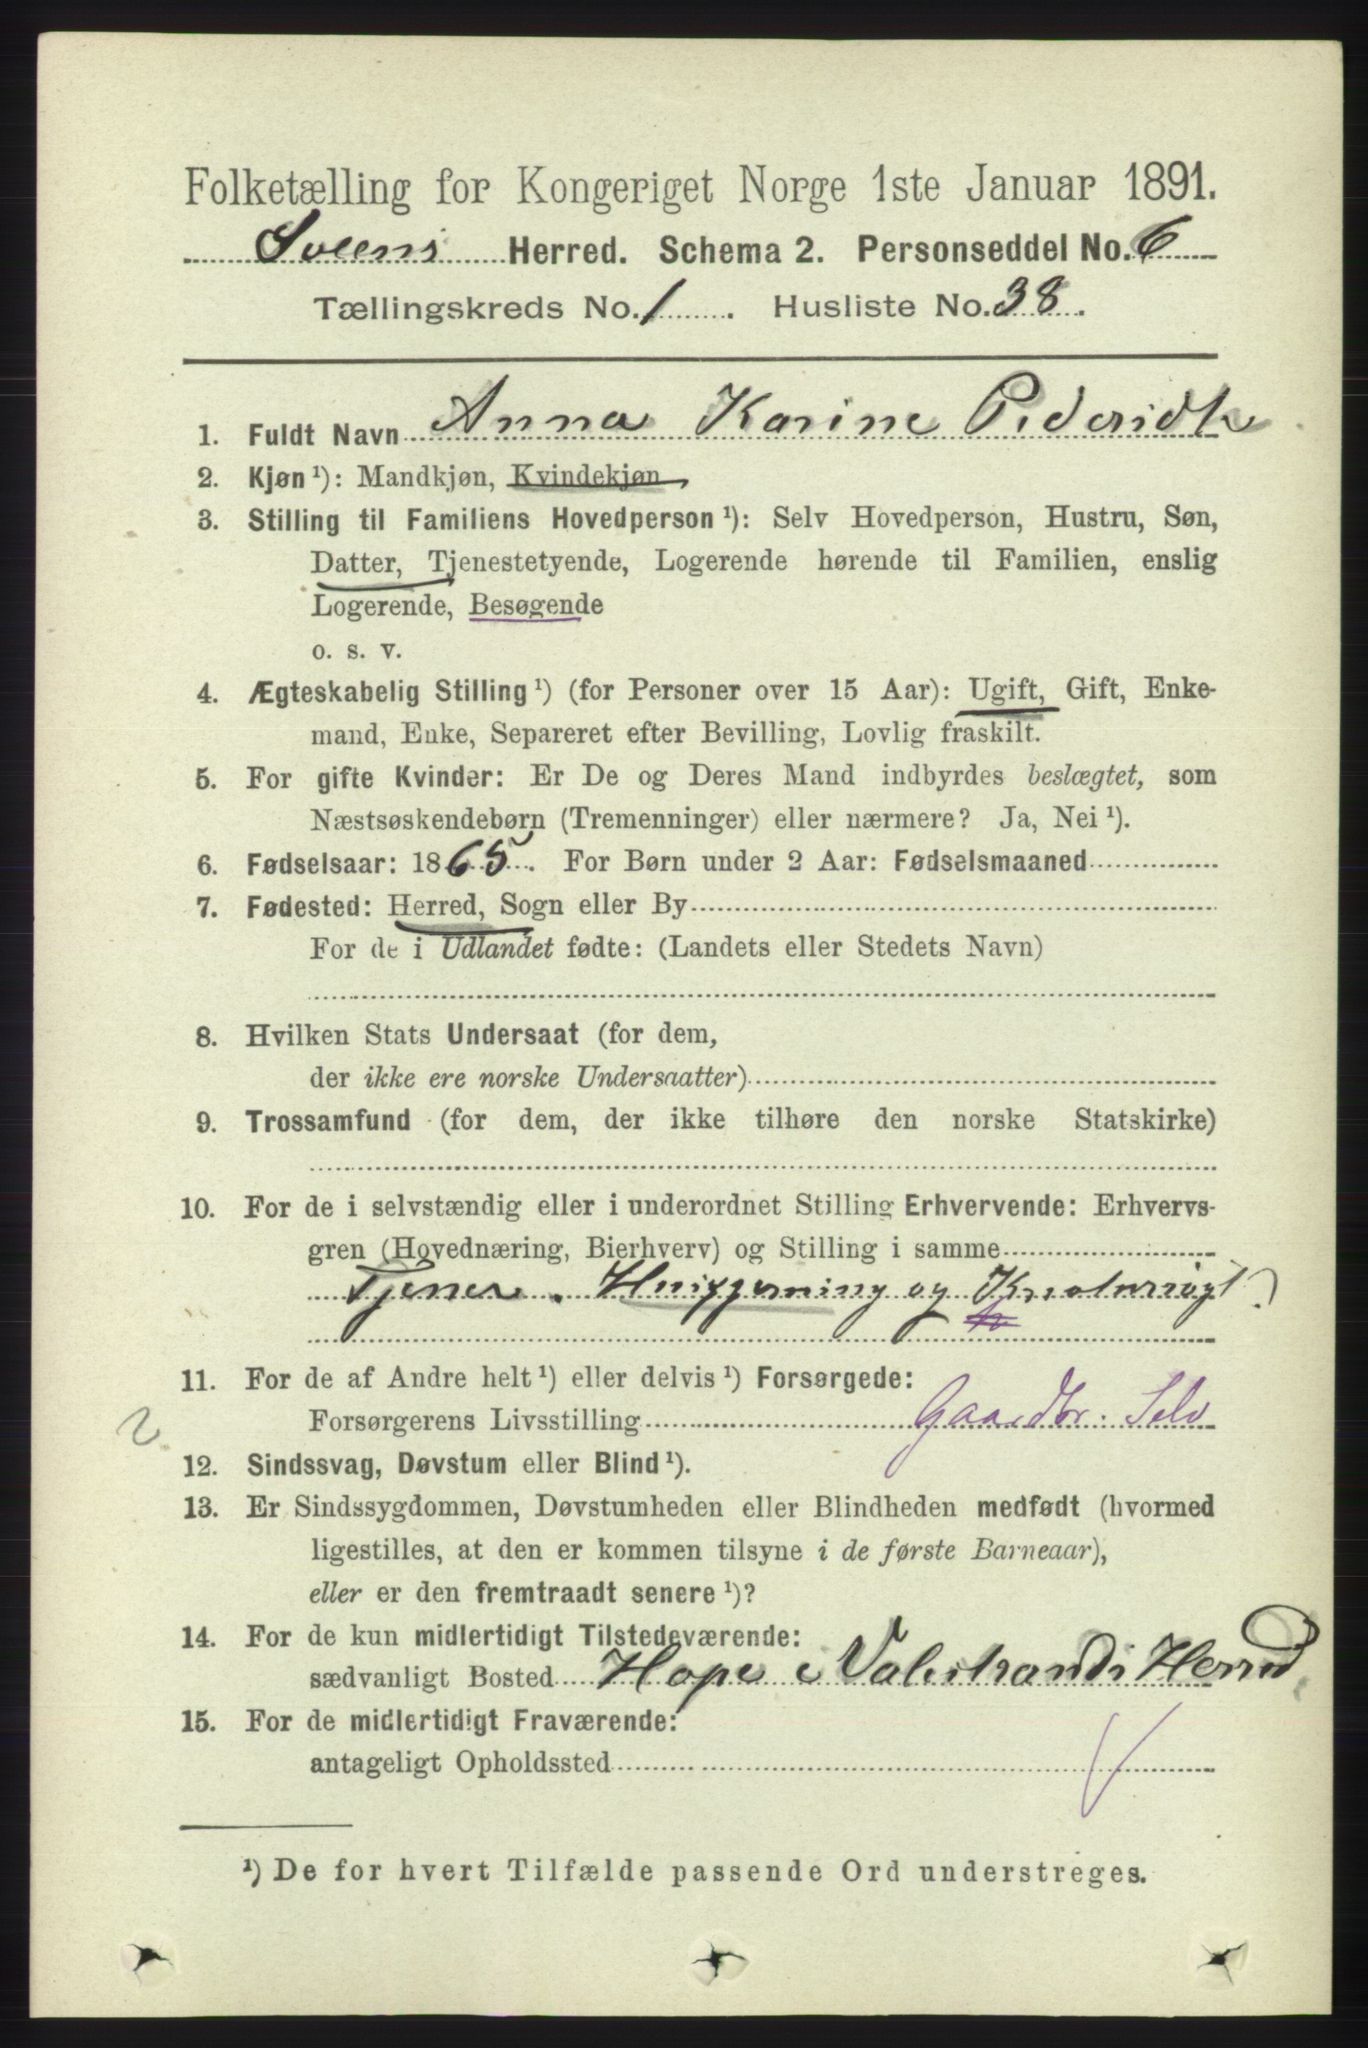 Folketælling for Kongeriget Norge 1ste Januar 1891.
Sveens Herred. Schema 2. Personseddel No. 6
Tællingskreds No. 1. Husliste No. 38.
1. Fuldt Navn Anna Karine Pedersdtr
2. Kjøn ¹): Mandkjøn, Kvindekjøn
3. Stilling til Familiens Hovedperson ¹): Selv Hovedperson, Hustru, Søn,
Datter, Tjenestetyende, Logerende hørende til Familien, enslig
Logerende, Besøgende
o. s. v.
4. Ægteskabelig Stilling ¹) (for Personer over 15 Aar): Ugift, Gift, Enke-
mand, Enke, Separeret efter Bevilling, Lovlig fraskilt.
5. For gifte Kvinder: Er De og Deres Mand indbyrdes beslægtet, som
Næstsøskendebørn (Tremenninger) eller nærmere? Ja, Nei ¹).
6. Fødselsaar: 1865. For Børn under 2 Aar: Fødselsmaaned
7. Fødested: Herred, Sogn eller By
For de i Udlandet fødte: (Landets eller Stedets Navn)
8. Hvilken Stats Undersaat (for dem,
der ikke ere norske Undersaatter)
9. Trossamfund (for dem, der ikke tilhøre den norske Statskirke)
10. For de i selvstændig eller i underordnet Stilling Erhvervende: Erhvervs-
gren (Hovednæring, Bierhverv) og Stilling i samme
Tjener. Husgjerning og Kreaturrøgt?
11. For de af Andre helt ¹) eller delvis ¹) Forsørgede:
Forsørgerens Livsstilling Gaardbr. Selv
2
12. Sindssvag, Døvstum eller Blind ¹).
13. Er Sindssygdommen, Døvstumheden eller Blindheden medfødt (hvormed
ligestilles, at den er kommen tilsyne i de første Barneaar),
eller er den fremtraadt senere ¹)?
14. For de kun midlertidigt Tilstedeværende:
sædvanligt Bosted Hope i Valestrands Herred
15. For de midlertidigt Fraværende:
antageligt Opholdssted
¹) De for hvert Tilfælde passende Ord understreges.